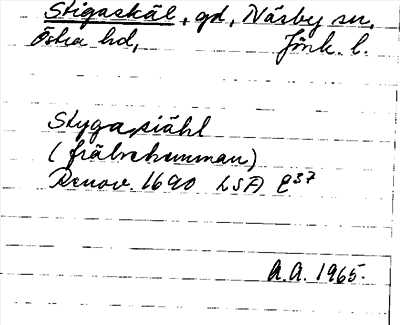 Stigaskäl, gd, Näsby sn,
Östra hd, Jönk. l.
Stygasiähl
(frälsehemman)
Renov. 1690 LSA E37
A.A. 1965.